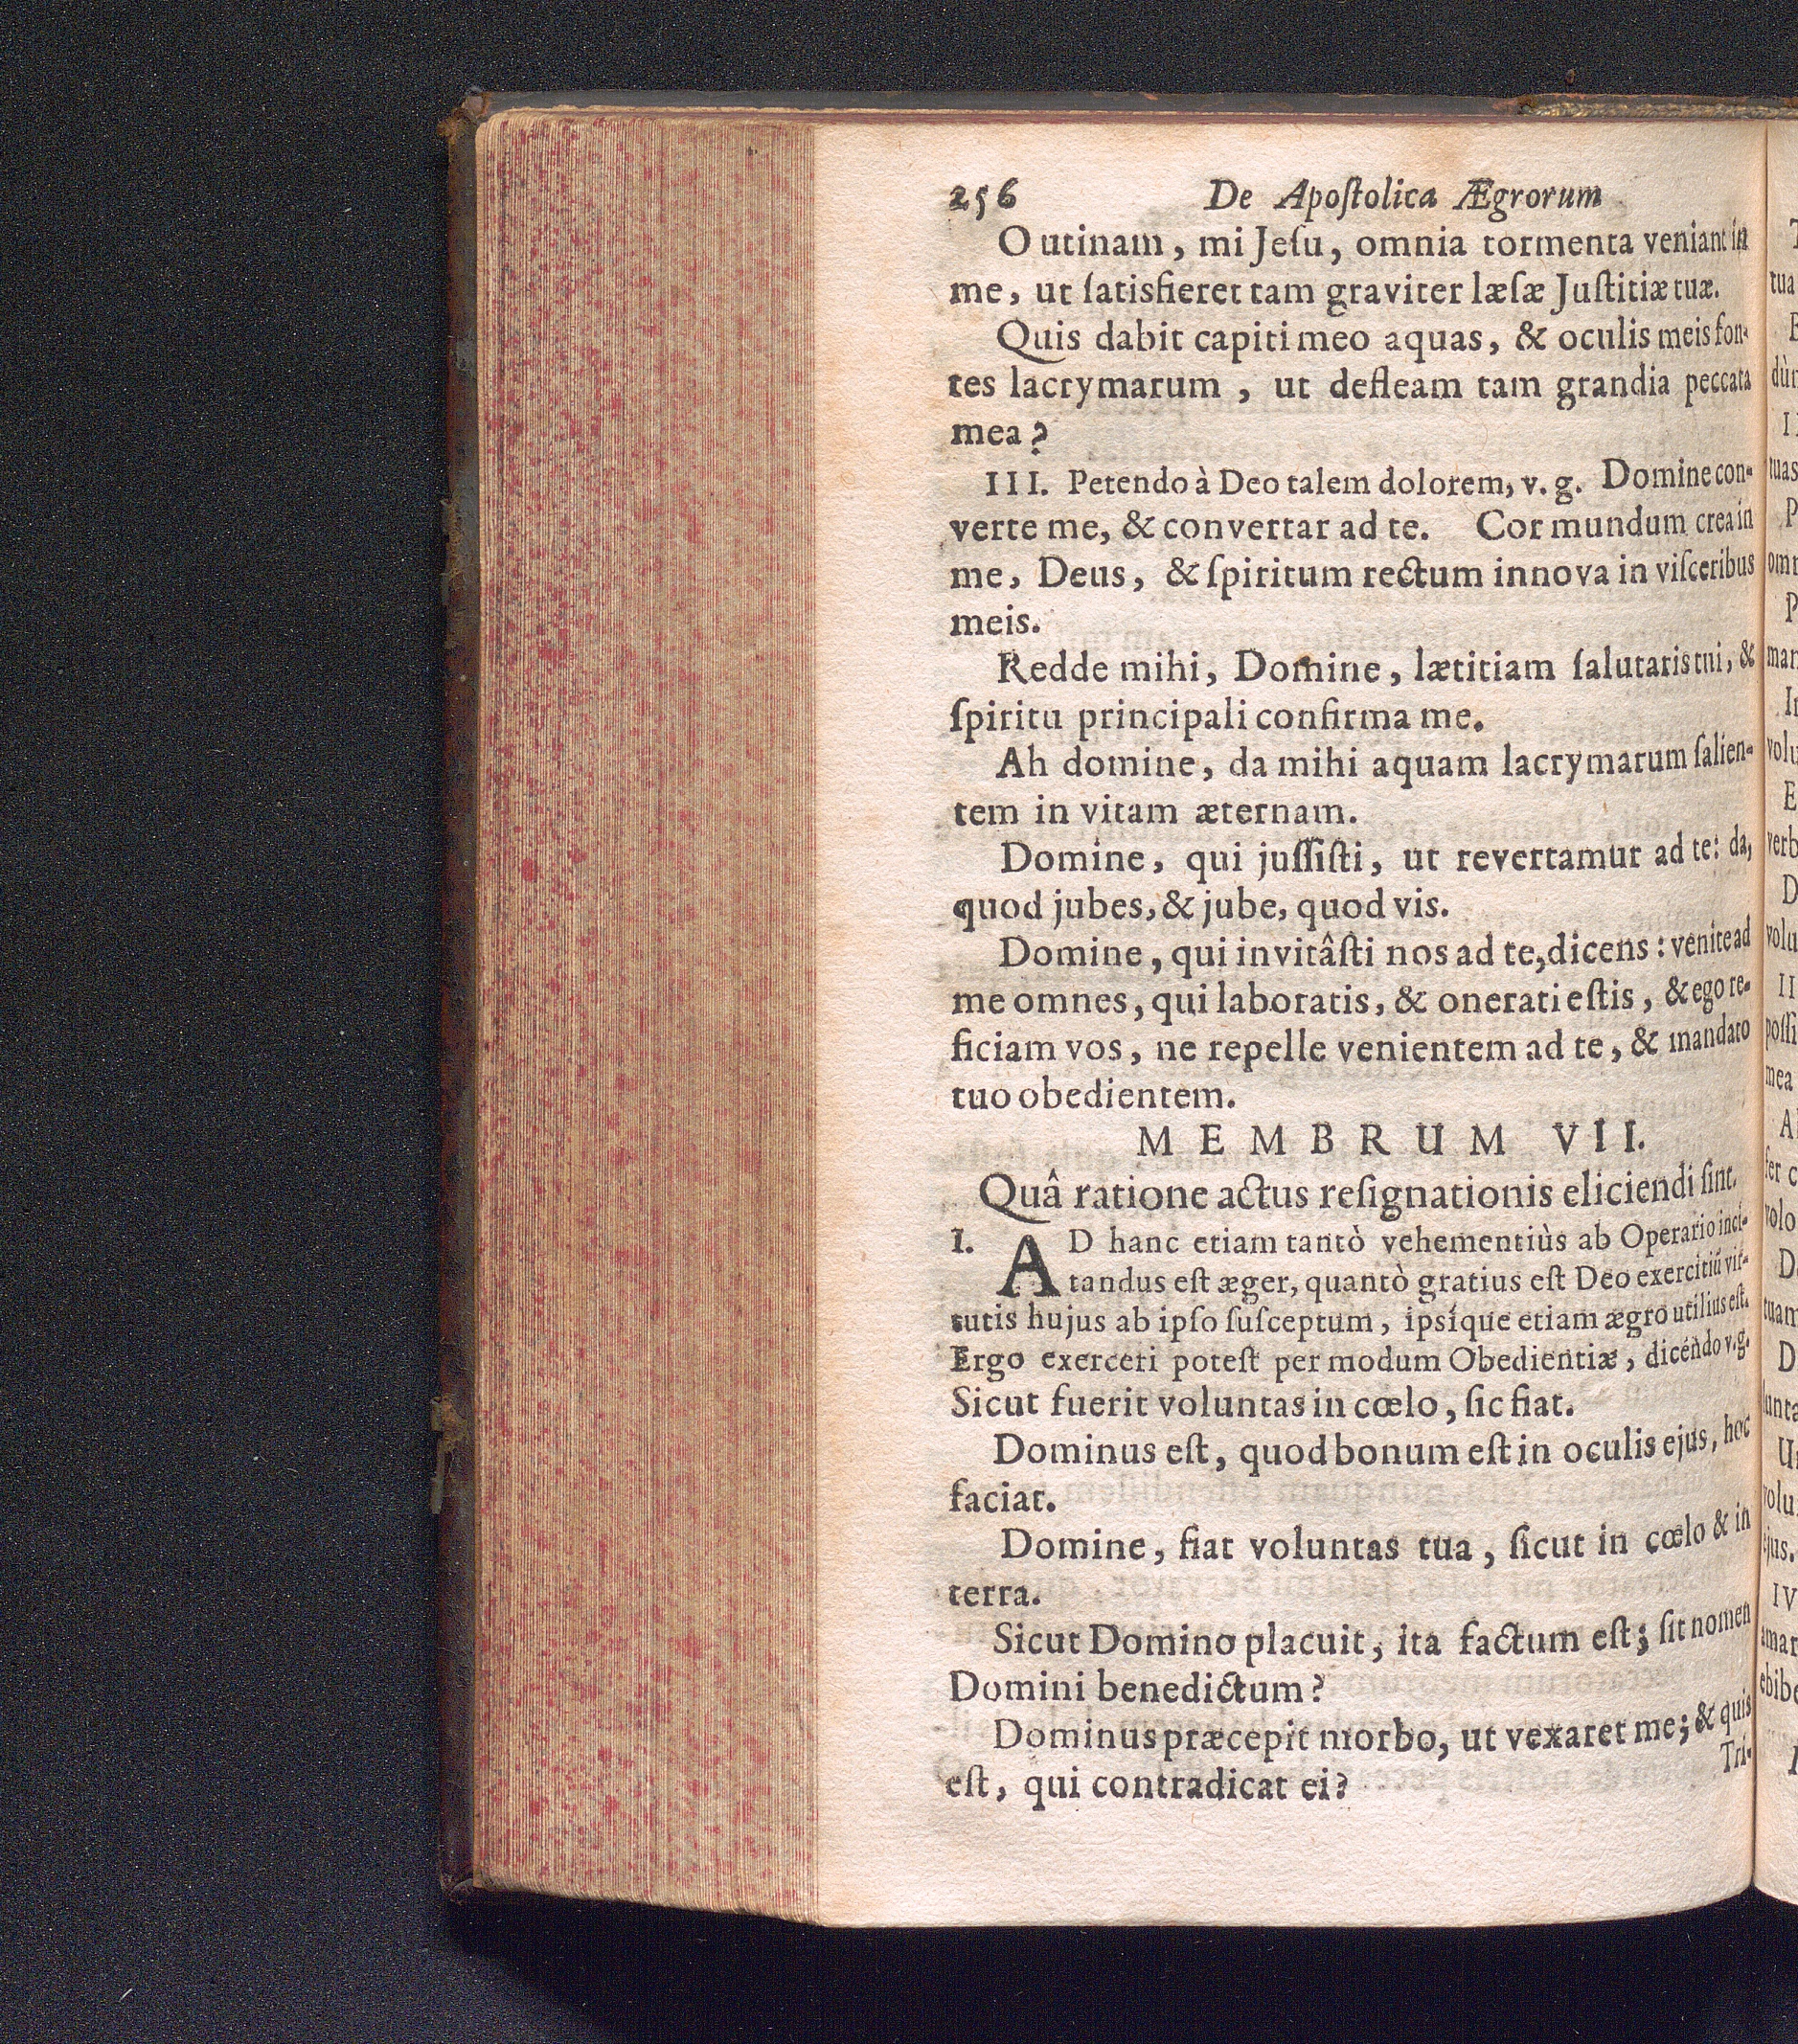 256 De Apoſtolica Ægrorum
O utinam, mi Jeſu, omnia tormenta veniant in
me, ut ſatisfieret tam graviter læſæ Juſtitiæ tuæ.
Quis dabit capiti meo aquas, & oculis meis fon-
tes lacrymarum, ut defleam tam grandia peccata
mea?
III. Petendo à Deo talem dolorem, v. g. Domine con-
verte me, & convertar ad te. Cor mundum crea in
me, Deus, & ſpiritum rectum innova in viſceribus
meis.
Redde mihi, Domine, lætitiam ſalutaris tui, &
ſpiritu principali confirma me.
Ah domine, da mihi aquam lacrymarum ſalien-
tem in vitam æternam.
Domine, qui juſſiſti, ut revertamur ad te: da,
quod jubes, & jube, quod vis.
Domine, qui invitâſti nos ad te, dicens: venite ad
me omnes, qui laboratis, & onerati eſtis, & ego re-
ficiam vos, ne repelle venientem ad te, & mandato
tuo obedientem.
MEMBRUM VII.
Quâ ratione actus reſignationis eliciendi ſint.
I. AD hanc etiam tantò vehementiùs ab Operario inci-
tandus eſt æger, quantò gratius eſt Deo exercitiū vir-
tutis hujus ab ipſo ſuſceptum, ipsíque etiam ægro utilius eſt.
Ergo exerceri poteſt per modum Obedientiæ, dicéndo v.g.
Sicut fuerit voluntas in cœlo, ſic fiat.
Dominus eſt, quod bonum eſt in oculis ejus, hoc
faciat.
Domine, fiat voluntas tua, ſicut in cœlo & in
terra.
Sicut Domino placuit, ita factum eſt; ſit nomen
Domini benedictum?
Dominus præcepit morbo, ut vexaret me; & quis
eſt, qui contradicat ei?
Tri-